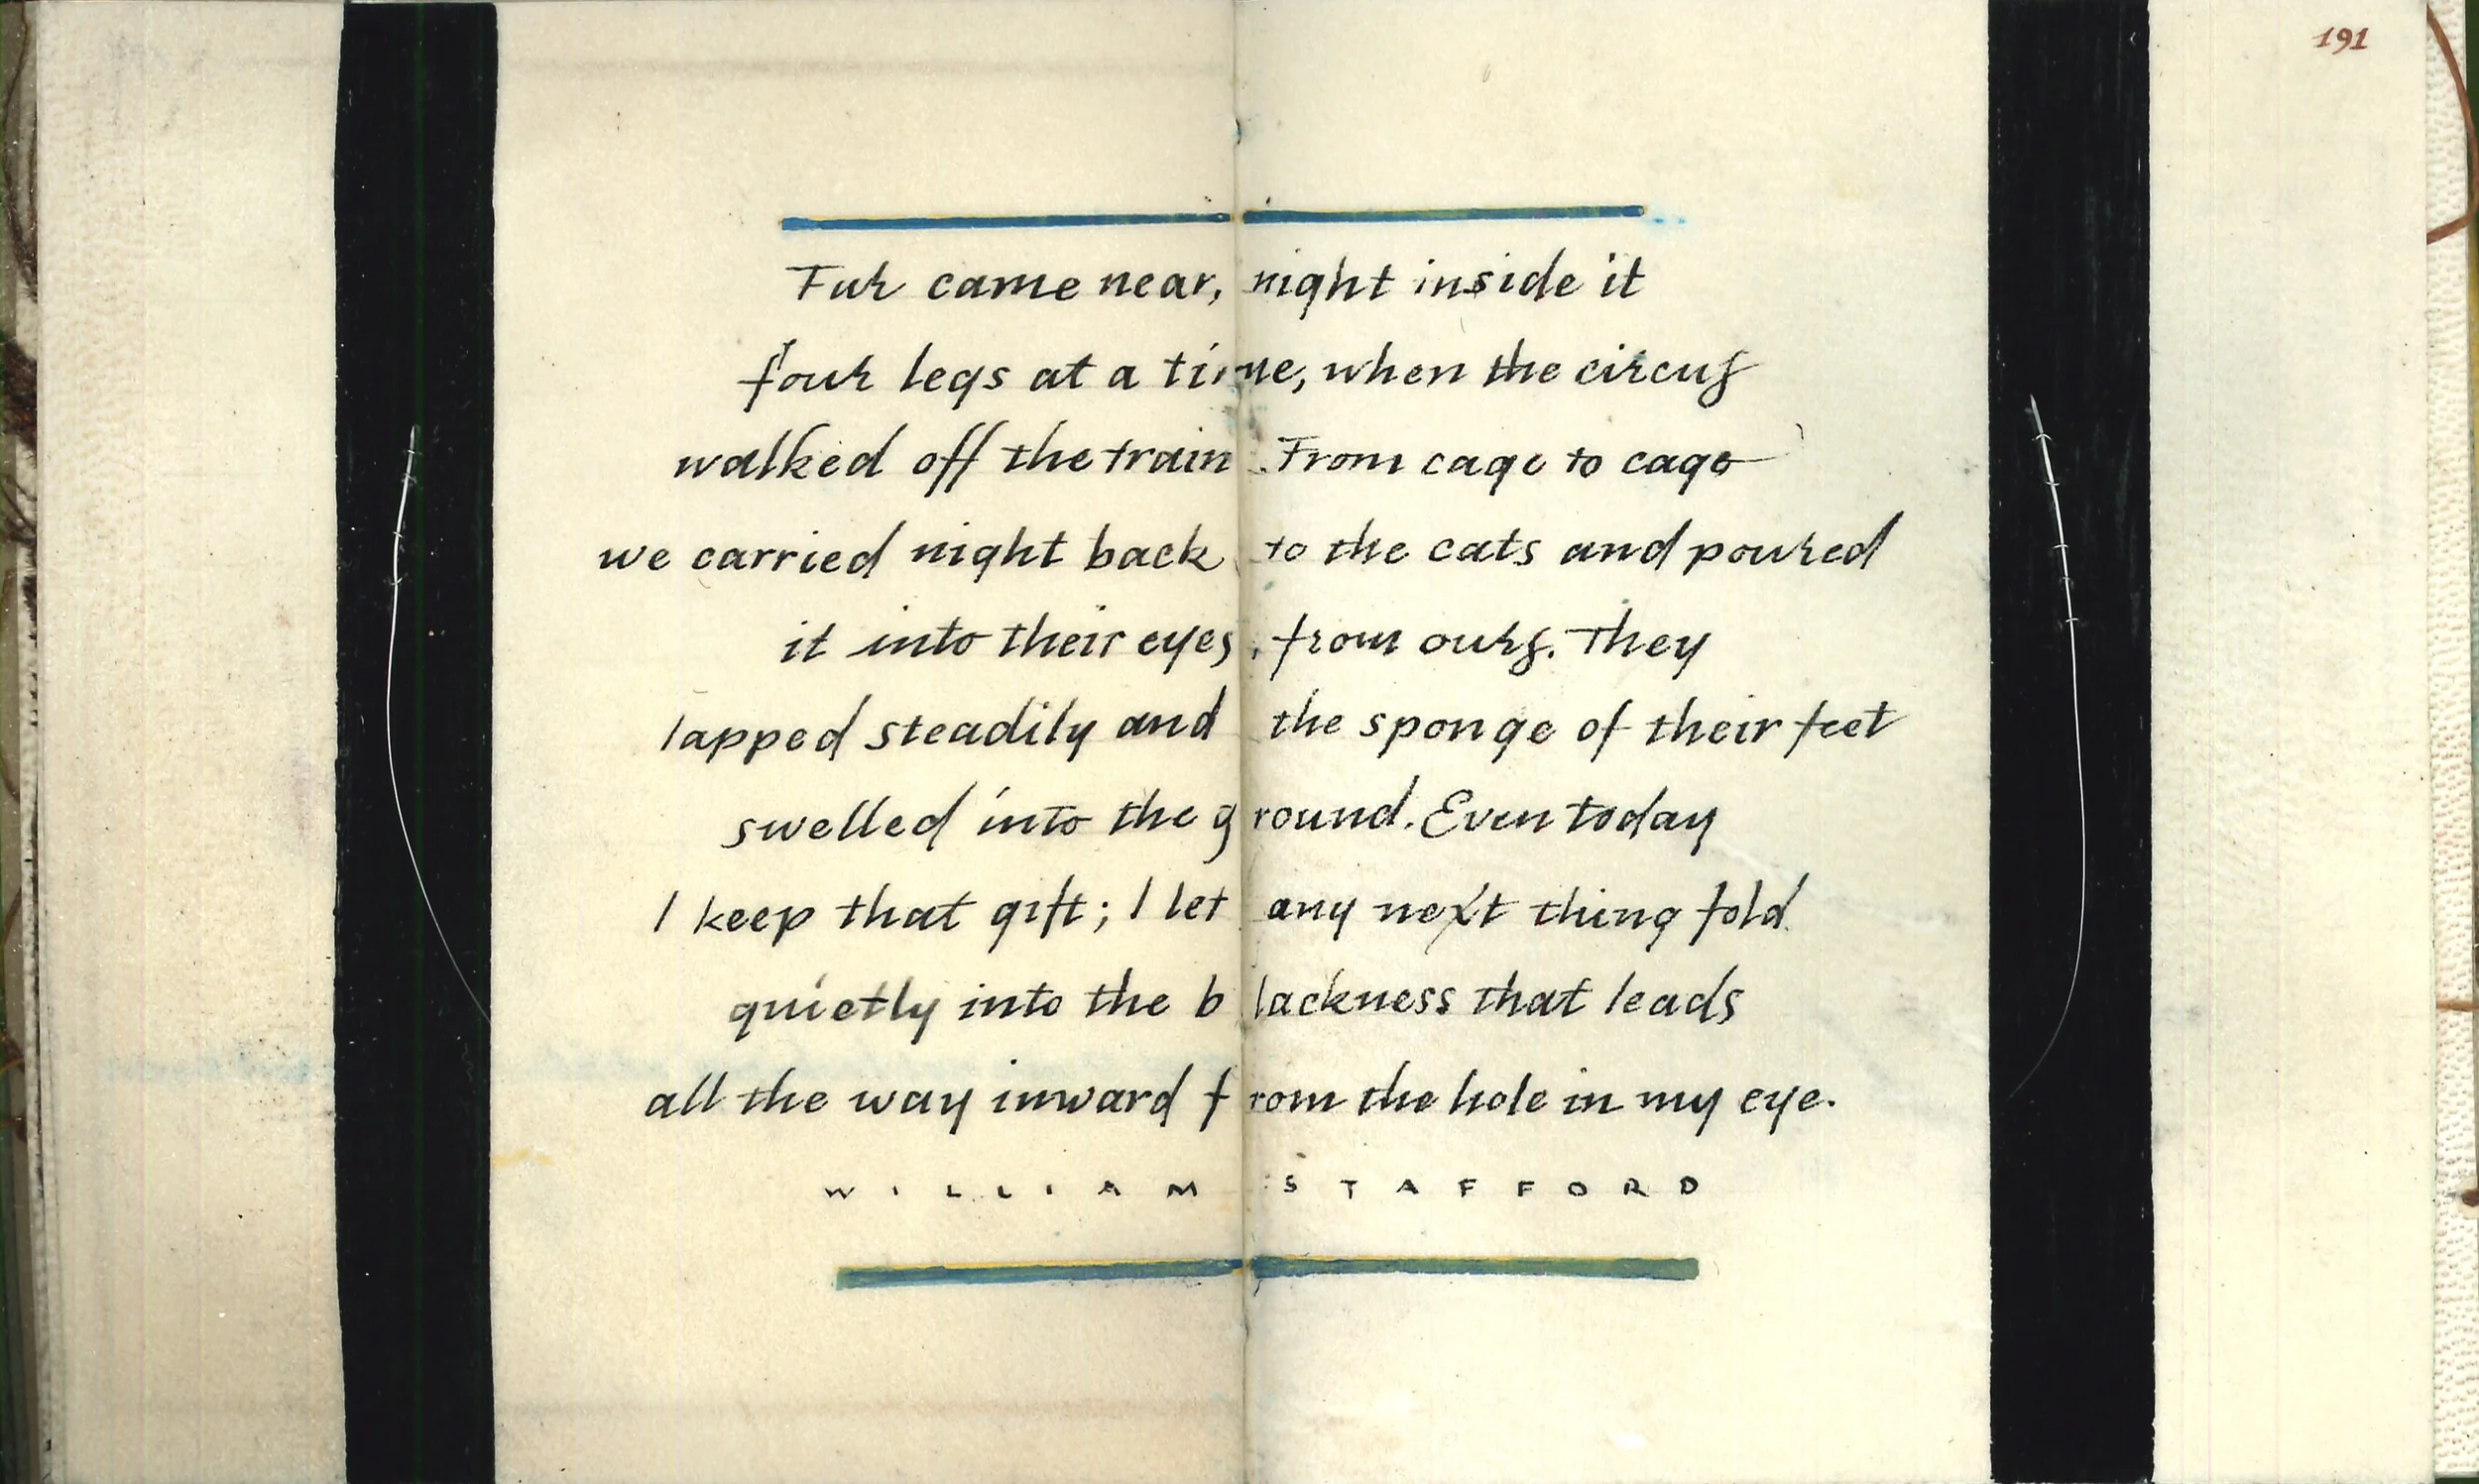 191
Fur came near, night inside it
four legs at a time, when the circus
walked off the train. From cage to cage
we carried night back to the cats and poured
it into their eyes, from ours. They
lapped steadily and the sponge of their feet
swelled into the ground. Even today
I keep that gift; I let any next thing fold
quietly into the blackness that leads
all the way inward from the hole in my eye.
WILLIAM STAFFORD